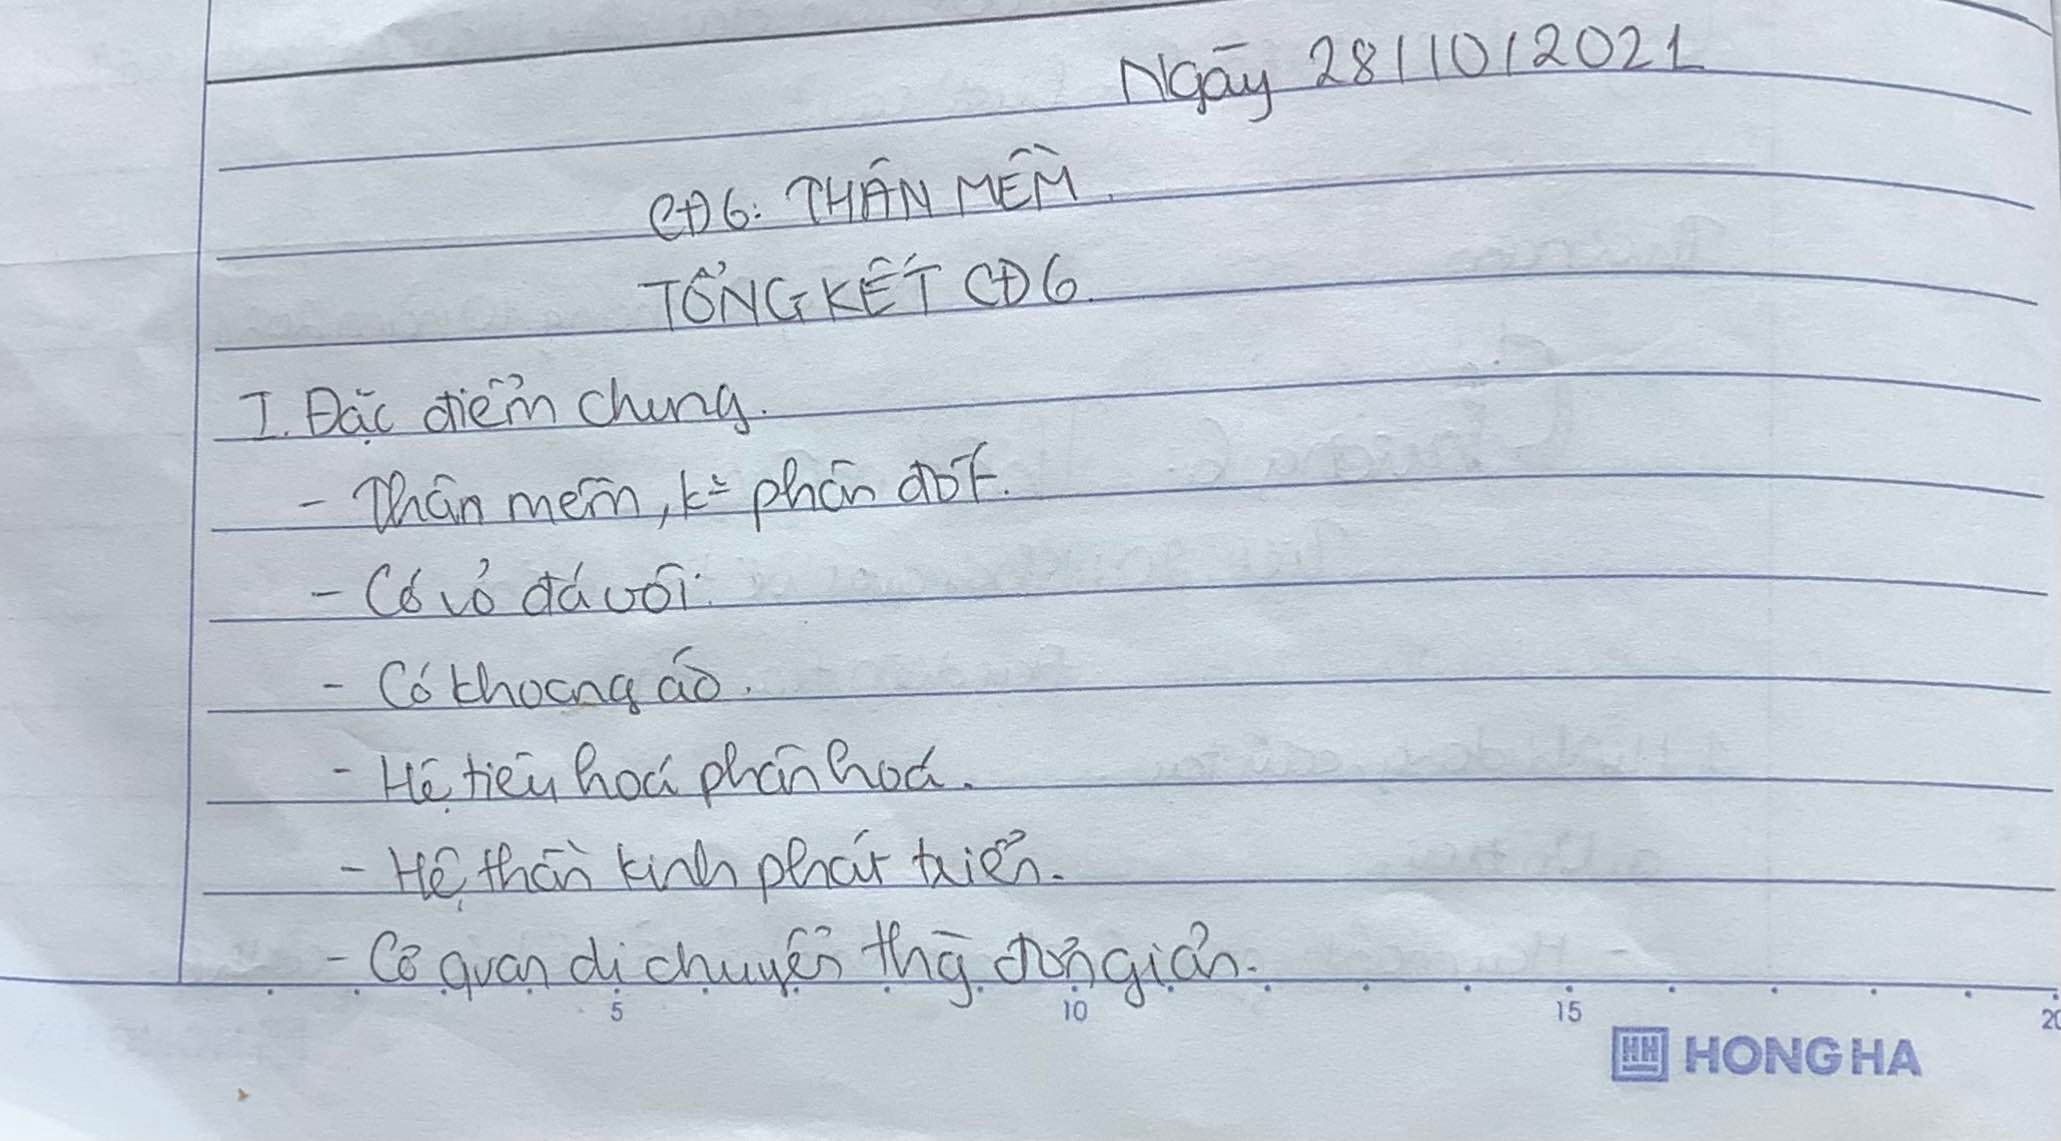 Ngày 28/10/2021
CĐ6: THÂN MỀM.
TỔNG KẾT CĐ6.
I. Đặc điểm chung.
- Thân mềm, k= phân đốt.
- Có vỏ đá vôi.
- Có khoang áo.
- Hệ tiêu hoá phân hoá.
- Hệ thần kinh phát triển.
- Cơ quan di chuyển thg đơn giản.
5 10 15 20
HH HONG HA